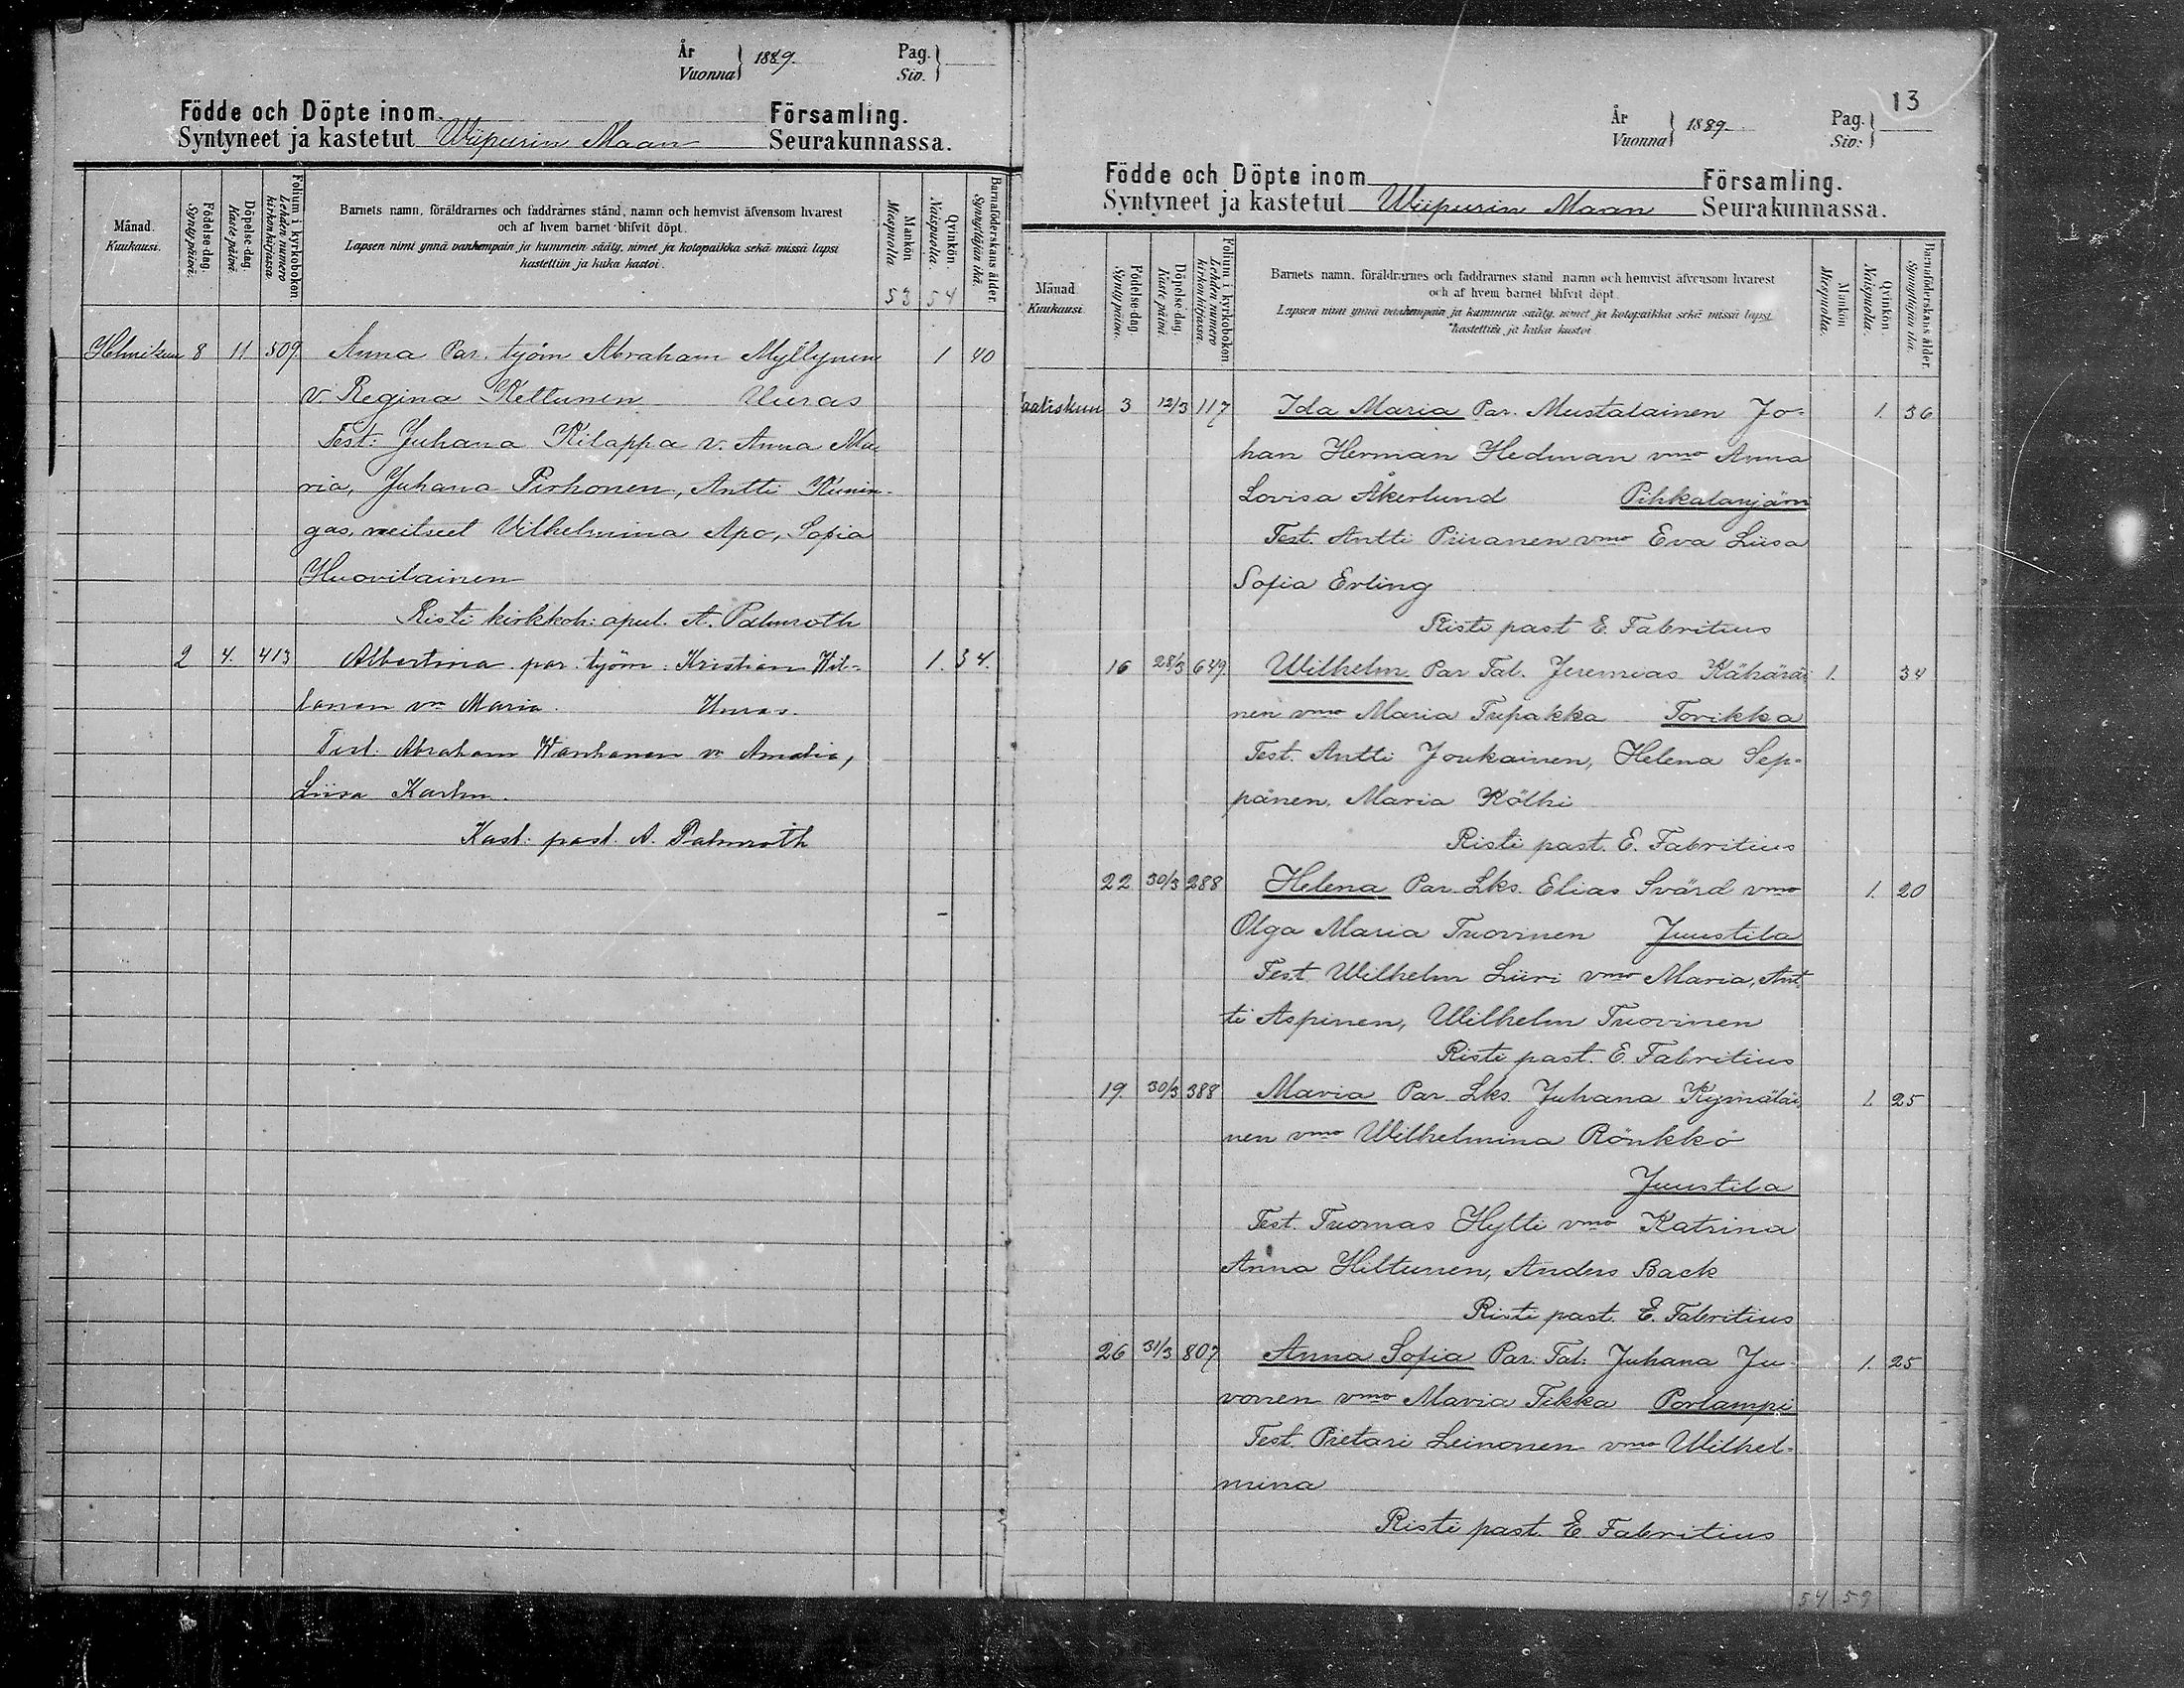 År
Vuonna } 1889.
Pag.
Siv. }
Födde och Döpte inom Församling.
Syntyneet ja kastetut Wiipurin Maan Seurakunnassa.
Månad. Kuukausi.
Födelse-dag. Syntypäivä.
Döpelse-dag. Kastepäivä.
Folium i kyrkoboken Lehden numero kirkonkirjassa.
Barnets namn, föräldrarnes och faddrarnes stånd, namn och hemvist äfvensom hvarest
och af hvem barnet blifvit döpt.
Lapsen nimi ynnä vanhempain ja kummein sääty, nimet ja kotopaikka sekä missä lapsi
kastettiin ja kuka kastoi.
Mankön Miespuolia 53
Qvinkön. Naispuolia. 54
Barnaföderskans ålder. Synnyttäjän ikä.
Helmikuu 8 11 509 Anna Par. työm Abraham Myllynen 1 40
v. Regina Kettunen Uuras
Test: Juhana Kilappa v. Anna Ma
ria, Juhana Pirhonen, Antti Kunin-
gas, neitseet Vilhelmina Apo, Sofia
Huovilainen
Risti kirkkoh: apul. A. Palmroth
2 4. 413 Albertina par. työm: Kristian Hil- 1. 34.
lanen vm Maria. Uuras.
Test: Abraham Wanhanen v. Amalia,
Liisa Karhu.
Kast: past. A. Palmroth
13
År
Vuonna } 1889.
Pag.
Siv: }
Födde och Döpte inom Församling.
Syntyneet ja kastetut Wiipurin Maan Seurakunnassa.
Månad Kuukausi
Födelse-dag. Syntypäivä.
Döpelse-dag. Kastepäivä.
Folium i kyrkoboken. Lehden numero kirkonkirjassa.
Barnets namn, föräldrarnes och faddrarnes stånd namn och hemvist äfvensom hvarest
och af hvem barnet blifvit döpt.
Lapsen nimi ynnä vanhempain ja kummein sääty, nimet ja kotopaikka sekä missä lapsi
kastettiin ja kuka kastoi
Mankön Miespuolia.
Qvinkön Naispuolia.
Barnaföderskans ålder. Synnyttäjän ikä.
aaliskuu 3 12/3 117 Ida Maria Par. Mustalainen Jo- 1. 36
han Herman Hedman vmo Anna
Lovisa Åkerlund Pihkalanjärvi
Test. Antti Piiranen vmo Eva Liisa
Sofia Erling
Risti past E. Fabritius
16 28/3 649. Wilhelm Par Tal. Jeremias Kähäräi 1. 34
nen vmo Maria Tupakka Tovikka
Test. Antti Joukainen, Helena Sep-
pänen, Maria Kölhi
Risti past. E. Fabritius
22 30/3 288 Helena Par. Lks. Elias Svärd vmo 1. 20
Olga Maria Tuovinen Juustila
Test Wilhelm Liiri vmo Maria, Ant
ti Aspinen, Wilhelm Tuovinen
Risti past. E. Fabritius
19. 30/3 388 Maria Par. Lks. Juhana Kymäläi, 1. 25
nen vmo Wilhelmina Rönkkö
Juustila
Test. Tuomas Hytti vmo Katrina
Anna Hiltunen, Anders Back
Risti past. E. Fabritius
26 31/3 807 Anna Sofia Par. Tal. Juhana Ju- 1. 25
vonen vmo Maria Tikka Porlampi
Test. Pietari Leinonen vmo Wilhel-
mina
Risti past. E Fabritius
54 59